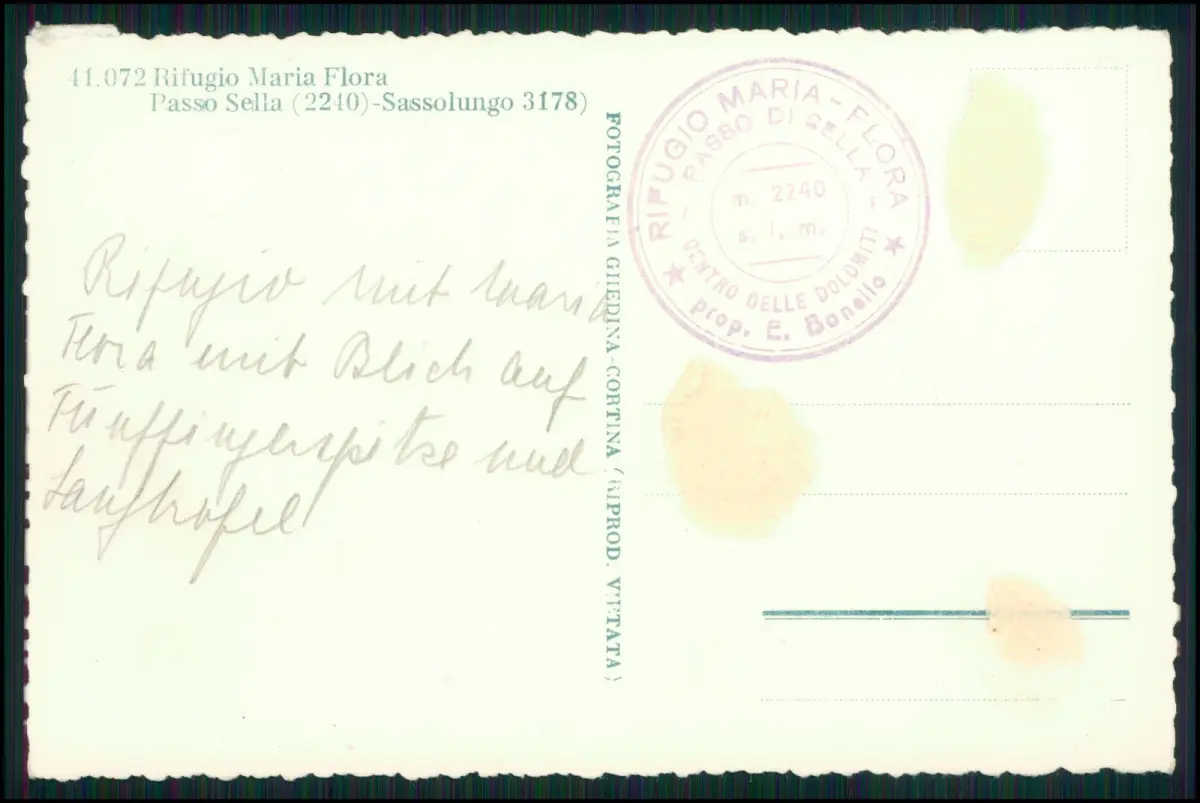 41.072 Rifugio Maria Flora
Passo Sella (2240)-Sassolungo 3178)
Rifugio mit Maria
Flora mit Blick auf
Fünffingerspitze und
Langkofel
FOTOGRAFIA GHEDINA-CORTINA (RIPROD. VIETATA)
RIFUGIO MARIA-FLORA
- PASSO DI SELLA -
m. 2240
s. l. m.
CENTRO DELLE DOLOMITI
★ prop. E. Bonello ★